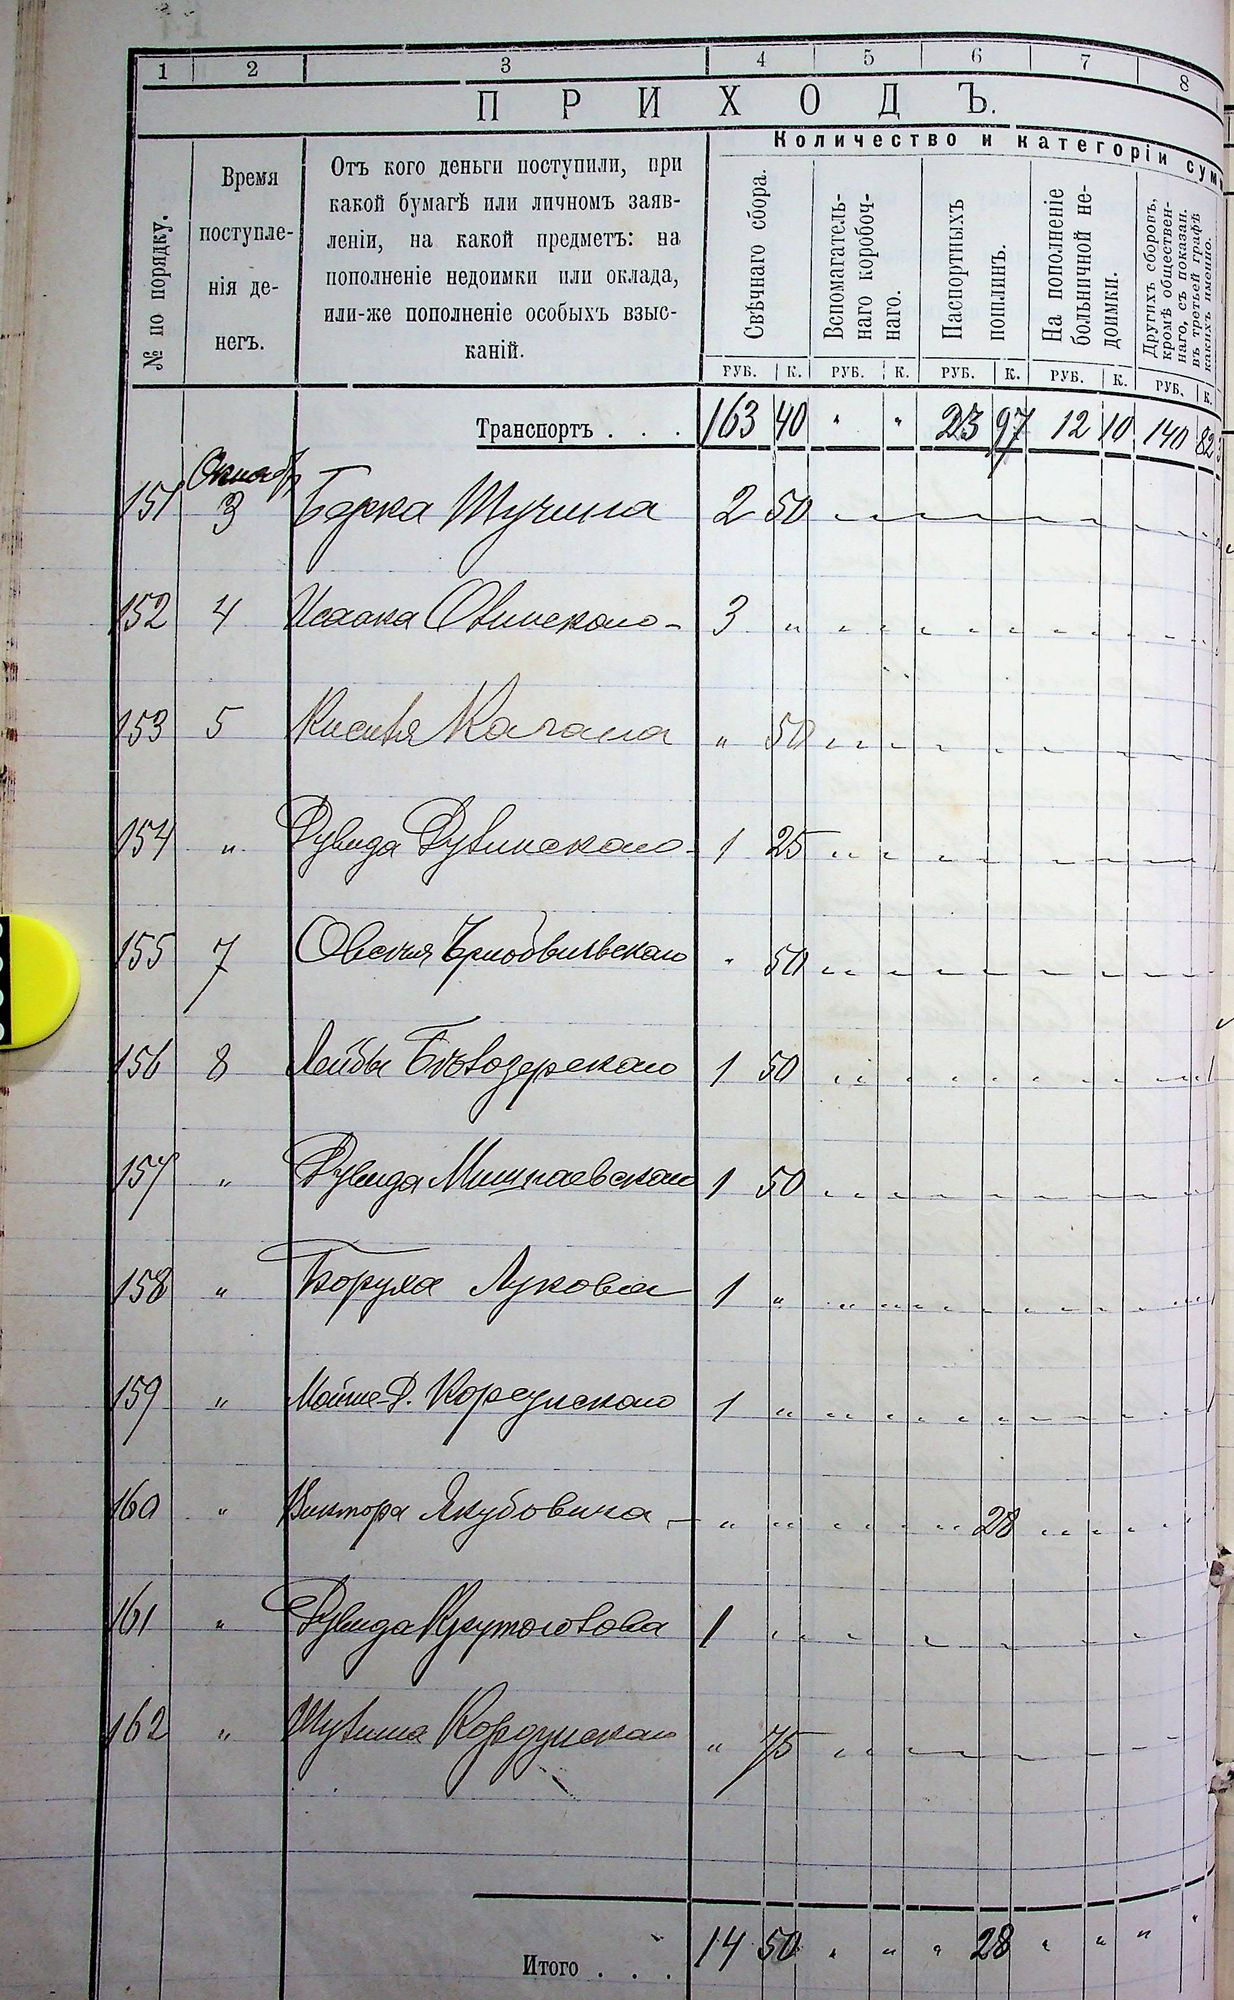 1 2 3 4 5 6 7 8
ПРИХОДЪ.
Количество и категоріи сумм
№ по порядку.
Время
поступле-
нія де-
негъ.
Отъ кого деньги поступили, при
какой бумагѣ или личномъ заяв-
леніи, на какой предметъ: на
пополненіе недоимки или оклада,
или-же пополненіе особыхъ взыс-
каній.
Свѣчнаго сбора.
Вспомагатель-
наго коробоч-
наго.
Паспортныхъ
пошлинъ.
На пополненіе
больничной не-
доимки.
Другихъ сборовъ,
кромѣ обществен-
наго, съ показан.
въ третьей графѣ
какихъ именно.
РУБ. К. РУБ. К. РУБ. К. РУБ. К. РУБ. К.
Транспортъ . . . 163 40 " " 23 97 12 10 140 82
Октябр
151 3 Берка Шучина 2 50
152 4 Исаака Свинскаго - 3 "
153 5 Кисиля Кагана " 50
154 " Дувида Дубинскаго - 1 25
155 7 Овсея " 50
156 8 Лейбы Бѣлозерскаго 1 50
157 " Дувида 1 50
158 " Боруха Лукова 1 "
159 " Мойше-Д. Корсунскаго 1 "
160 " Виктора Якубовича - " " 28
161 " Дувида Крутоголова 1
162 " Корсунскаго " 75
Итого . . . 14 50 " " " 28 " " " "